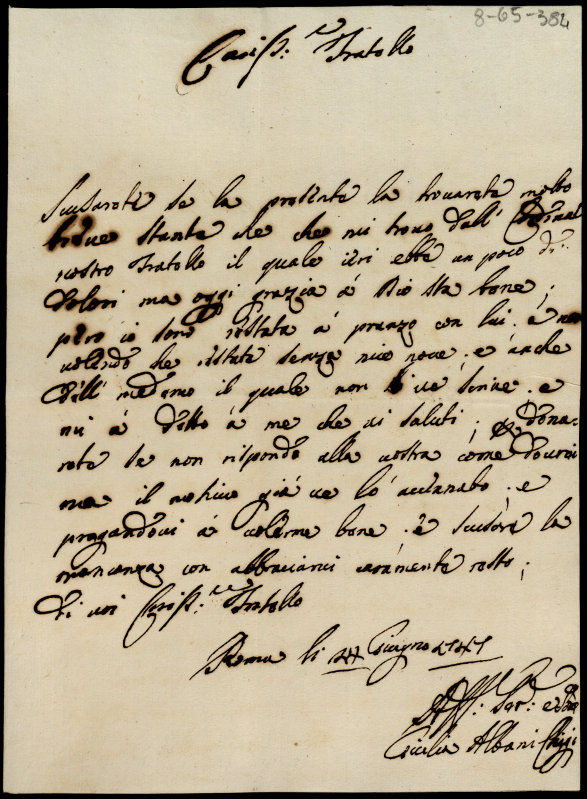 8-65-384
Cariss:mo Fratello
Scusarete se la presente la trovarete molto
breve stante che che mi trovo dall' Cardinal
nostro Fratello il quale ieri ebbe un poco di
dolori ma oggi grazia à Dio sta bene;
però io sono restata à pranzo con lui. e non
volendo che restate senza mie nove. e anche
dell' medemo il quale non vi scrive. e
mi à detto à me che vi saluti; 
rete se non rispondo alla vostra come dovrei
ma il motivo già ve lò acenato; e
pregandovi à volerme bene. e scusare la
mancanza con abbraciarvi caramente resto;
Di voi Cariss:mo Fratello
Roma li Giugno
Aff:ma Sor:
Cecilia Albani Chigi